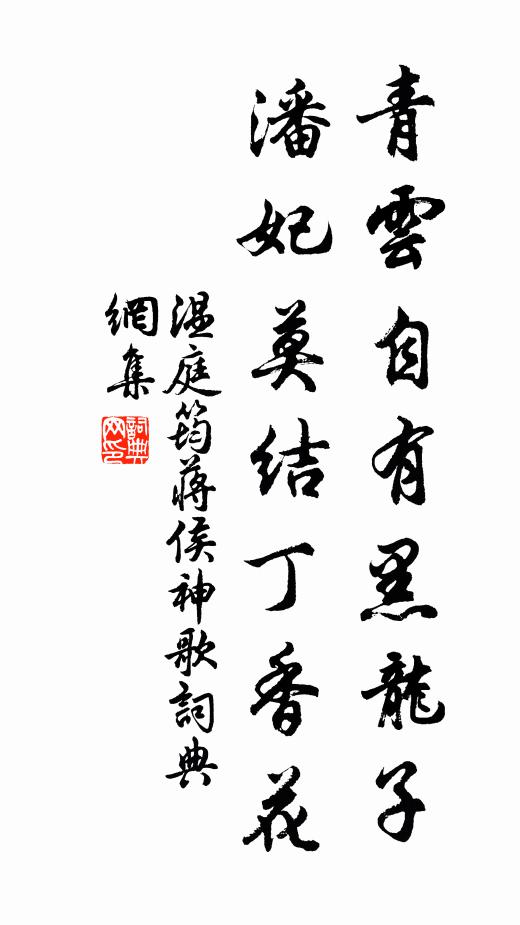 青雲自有黑龍子
潘妃莫結丁香花
温庭筠蔣侯神歌詞典
網集
詞典
网印